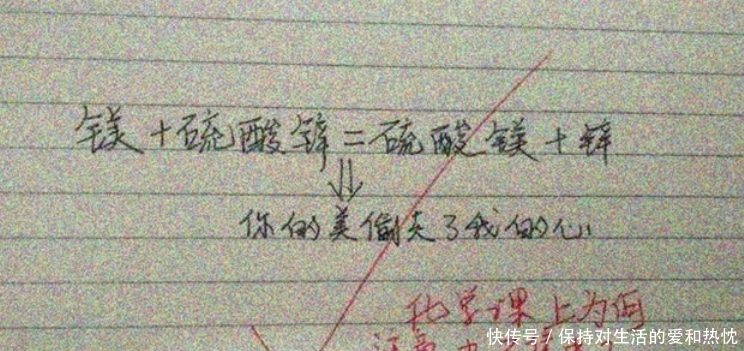 镁+硫酸锌=硫酸镁+锌
⇓
你的美偷走了我的心
化学课上为何
快传号/保持对生活的爱和热忱